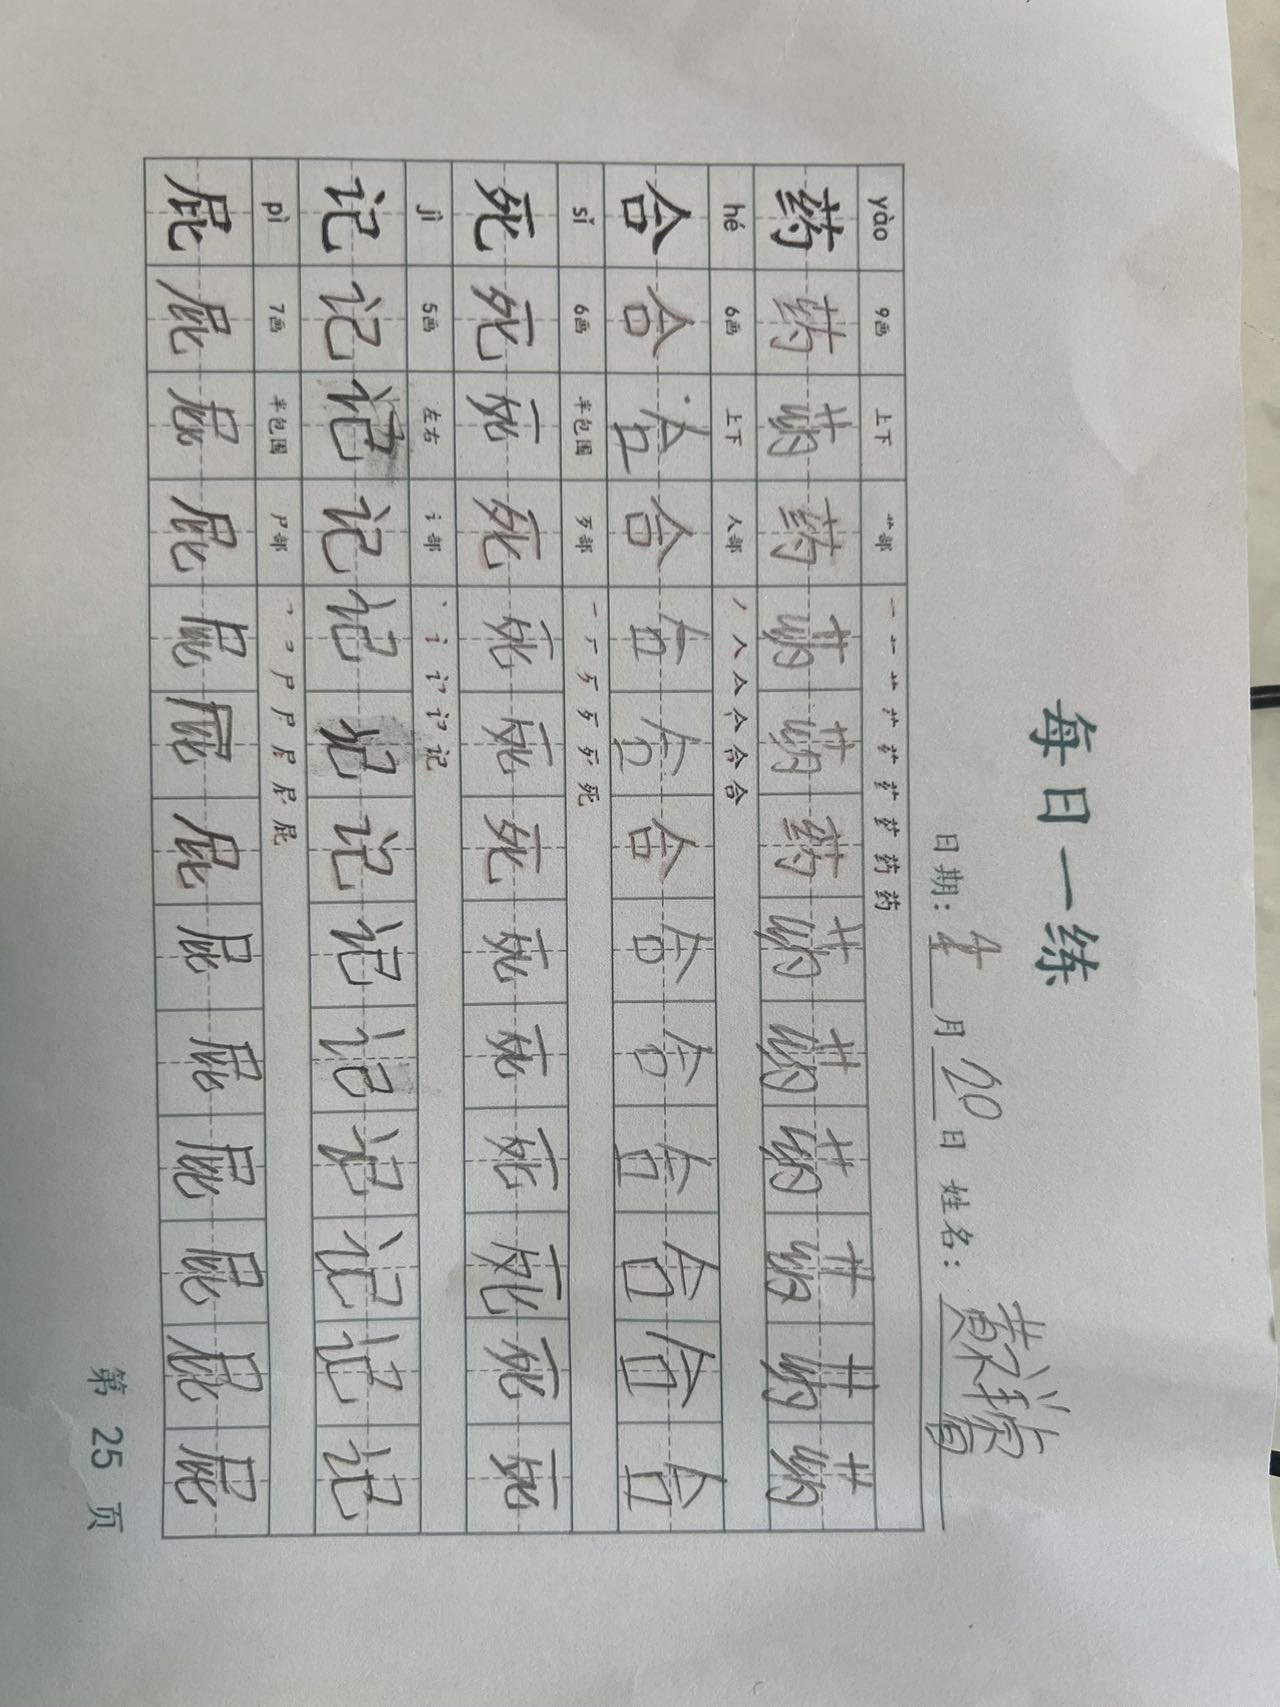 每日一练
日期: 月 20 日 姓名: 黄
yào 9画 上下 艹部 一 十 艹 药 药
药 药 药 药 药 药 药 药 药 药 药 药 药
hé 6画 上下 人部 丿 人 亼 合 合
合 合 合 合 合 合 合 合 合 合 合 合 合
sǐ 6画 半包围 歹部 一 丆 歹 歹 死
死 死 死 死 死 死 死 死 死 死 死 死 死
jì 5画 左右 讠部 丶 讠 记
记 记 记 记 记 记 记 记 记 记 记 记 记
pì 7画 半包围 尸部 尸 尸 屁
屁 屁 屁 屁 屁 屁 屁 屁 屁 屁 屁 屁 屁
第 25 页